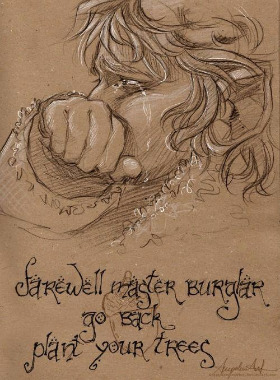 farewell master burglar
go back
plant your trees